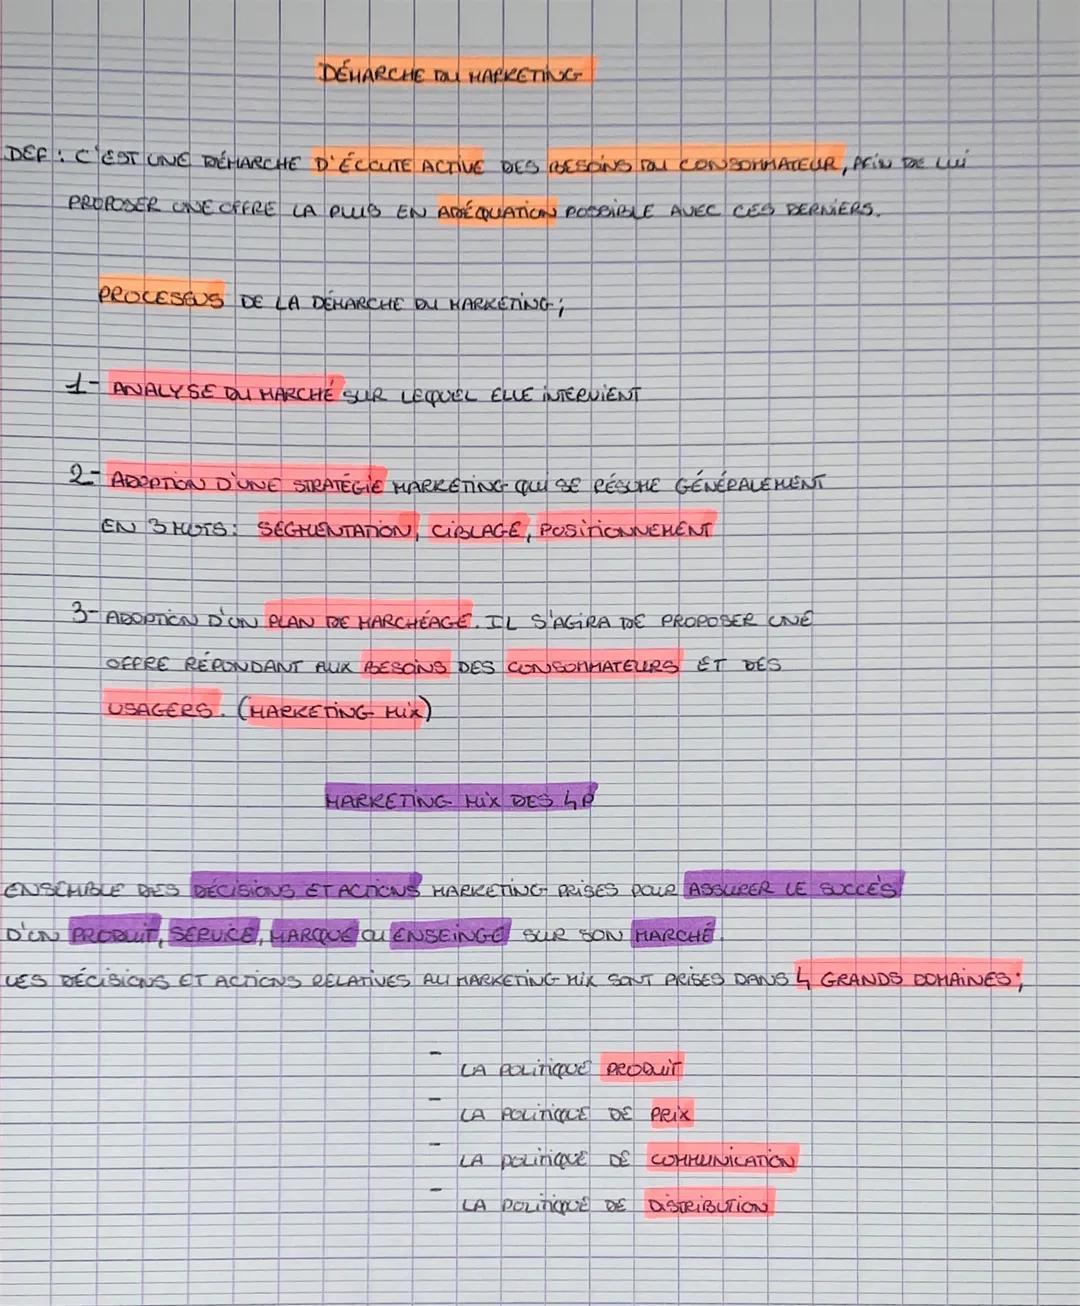 DÉMARCHE DU MARKETING
DEF : C'EST UNE DÉMARCHE D'ÉCOUTE ACTIVE DES BESOINS DU CONSOMMATEUR, AFIN DE LUI
PROPOSER UNE OFFRE LA PLUS EN ADÉQUATION POSSIBLE AVEC CES DERNIERS.
PROCESSUS DE LA DÉMARCHE DU MARKETING ;
1- ANALYSE DU MARCHÉ SUR LEQUEL ELLE INTERVIENT
2- ADOPTION D'UNE STRATÉGIE MARKETING QUI SE RÉSUME GÉNÉRALEMENT
EN 3 MOTS : SEGMENTATION, CIBLAGE, POSITIONNEMENT
3- ADOPTION D'UN PLAN DE MARCHÉAGE. IL S'AGIRA DE PROPOSER UNE
OFFRE RÉPONDANT AUX BESOINS DES CONSOMMATEURS ET DES
USAGERS. (MARKETING MIX)
MARKETING MIX DES 4P
ENSEMBLE DES DÉCISIONS ET ACTIONS MARKETING PRISES POUR ASSURER LE SUCCÈS
D'UN PRODUIT, SERVICE, MARQUE OU ENSEINGE SUR SON MARCHÉ.
LES DÉCISIONS ET ACTIONS RELATIVES AU MARKETING MIX SONT PRISES DANS 4 GRANDS DOMAINES ;
- LA POLITIQUE PRODUIT
- LA POLITIQUE DE PRIX
- LA POLITIQUE DE COMMUNICATION
- LA POLITIQUE DE DISTRIBUTION